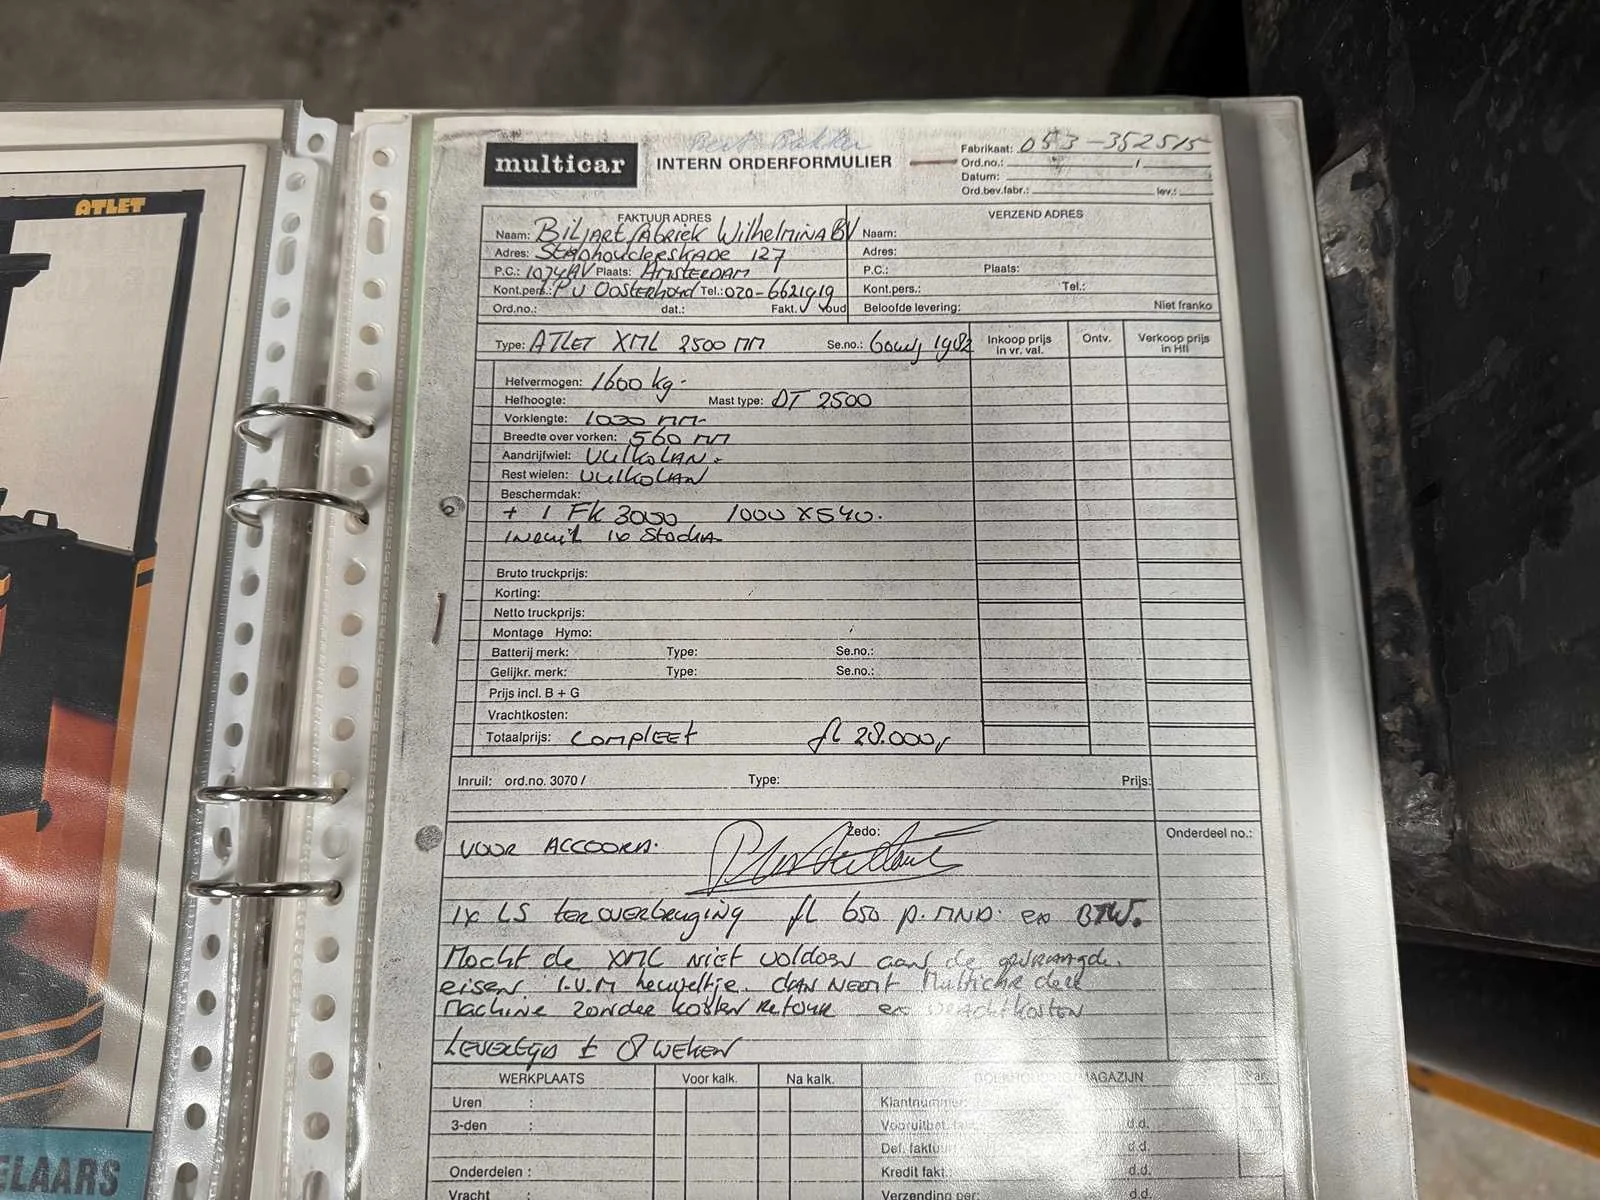 ATLET
ELAARS
Bert Bakker
multicar INTERN ORDERFORMULIER
Fabrikaat: 053-352515
Ord.no.: /
Datum:
Ord.bev.fabr.: lev.:
FAKTUUR ADRES VERZEND ADRES
Naam: Biljartfabriek Wilhelmina BV Naam:
Adres: Stadhouderskade 127 Adres:
P.C.: 1074AV Plaats: Amsterdam P.C.: Plaats:
Kont.pers.: P v Oosterhout Tel.: 020-6621919 Kont.pers.: Tel.:
Ord.no.: dat.: Fakt. voud Beloofde levering: Niet franko
Type: ATLET XML 2500 mm Se.no.: bouwj 1982 Inkoop prijs in vr. val. Ontv. Verkoop prijs in Hfl
Hefvermogen: 1600 kg-
Hefhoogte: Mast type: DT 2500
Vorklengte: mm-
Breedte over vorken: 560 mm
Aandrijfwiel: Vulkolan.
Rest wielen: Vulkolan
Beschermdak:
+ 1 FK 3000 1000 x 540.
inruil
Bruto truckprijs:
Korting:
Netto truckprijs:
Montage Hymo:
Batterij merk: Type: Se.no.:
Gelijkr. merk: Type: Se.no.:
Prijs incl. B + G
Vrachtkosten:
Totaalprijs: compleet fl 28.000,-
Inruil: ord.no. 3070 / Type: Prijs:
Zedo: Onderdeel no.:
VOOR ACCOORD.
1x LS ter overbrugging fl 650 p. mnd. en BTW.
Mocht de XML niet voldoen aan de gevraagde.
eisen i.v.m heuveltje. dan neemt Multicar deze
machine zonder kosten retour en vrachtkosten
Levertijd ± 8 weken
WERKPLAATS Voor kalk. Na kalk. MAGAZIJN
Uren : Klantnummer:
3-den : Vooruitbet. d.d.
Def. faktuur d.d.
Onderdelen : Kredit fakt. d.d.
Vracht : Verzending per: d.d.